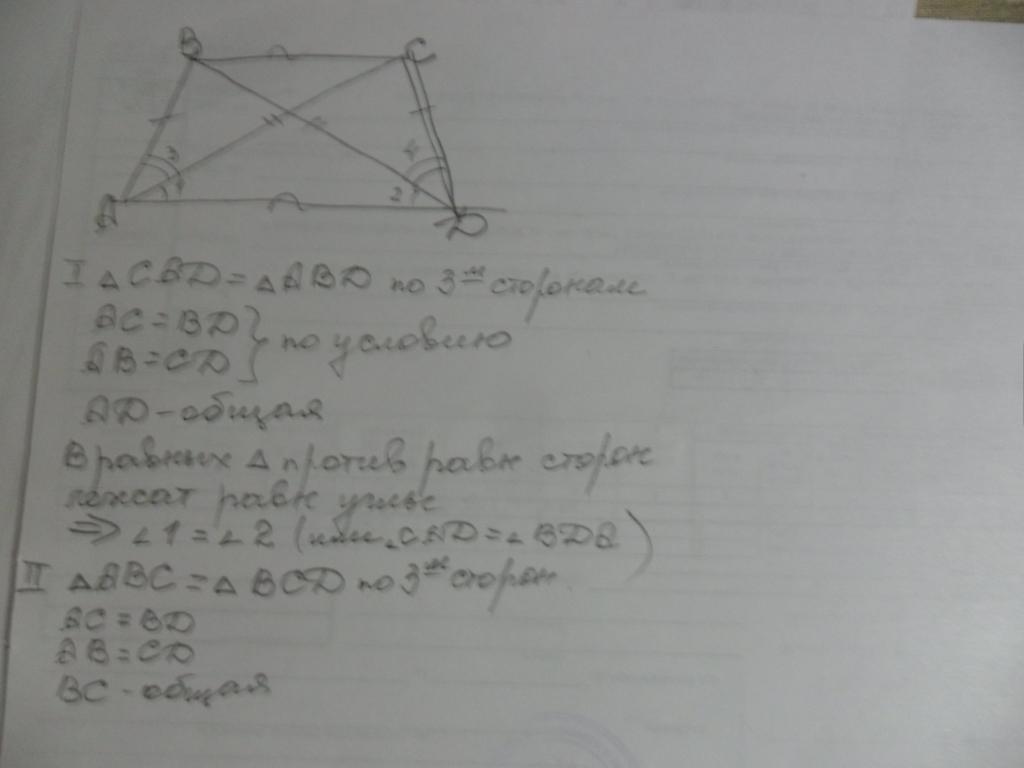 B C
3 4
1 2
A D
I △CAD = △ABD по 3-м сторонам
AC = BD } по условию
AB = CD
AD - общая
В равных △ против равн сторон
лежат равн углы
⇒ ∠1 = ∠2 (или ∠CAD = ∠BDA)
II △ABC = △BCD по 3-м сторон.
AC = BD
AB = CD
BC - общая